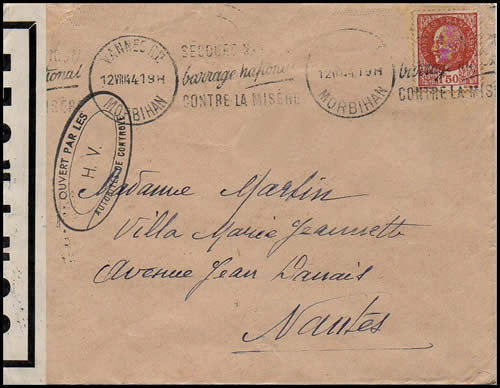 VANNES
12 VIII 44 19H
MORBIHAN
SECOURS NAL
barrage national
CONTRE LA MISÈRE
12 VIII 44 19H
MORBIHAN
barrage
CONTRE LA MIS
onal
ISÈRE
50
OUVERT PAR LES
H.V.
AUTORITÉS DE CONTRÔLE
Madame Martin
Villa Marie Jeannette
Avenue Jean Danais
Nantes